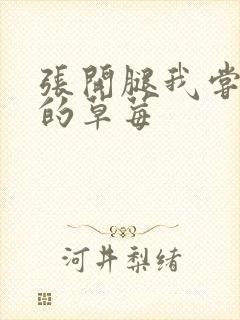 張開腿我嘗
的草莓
河井梨緒